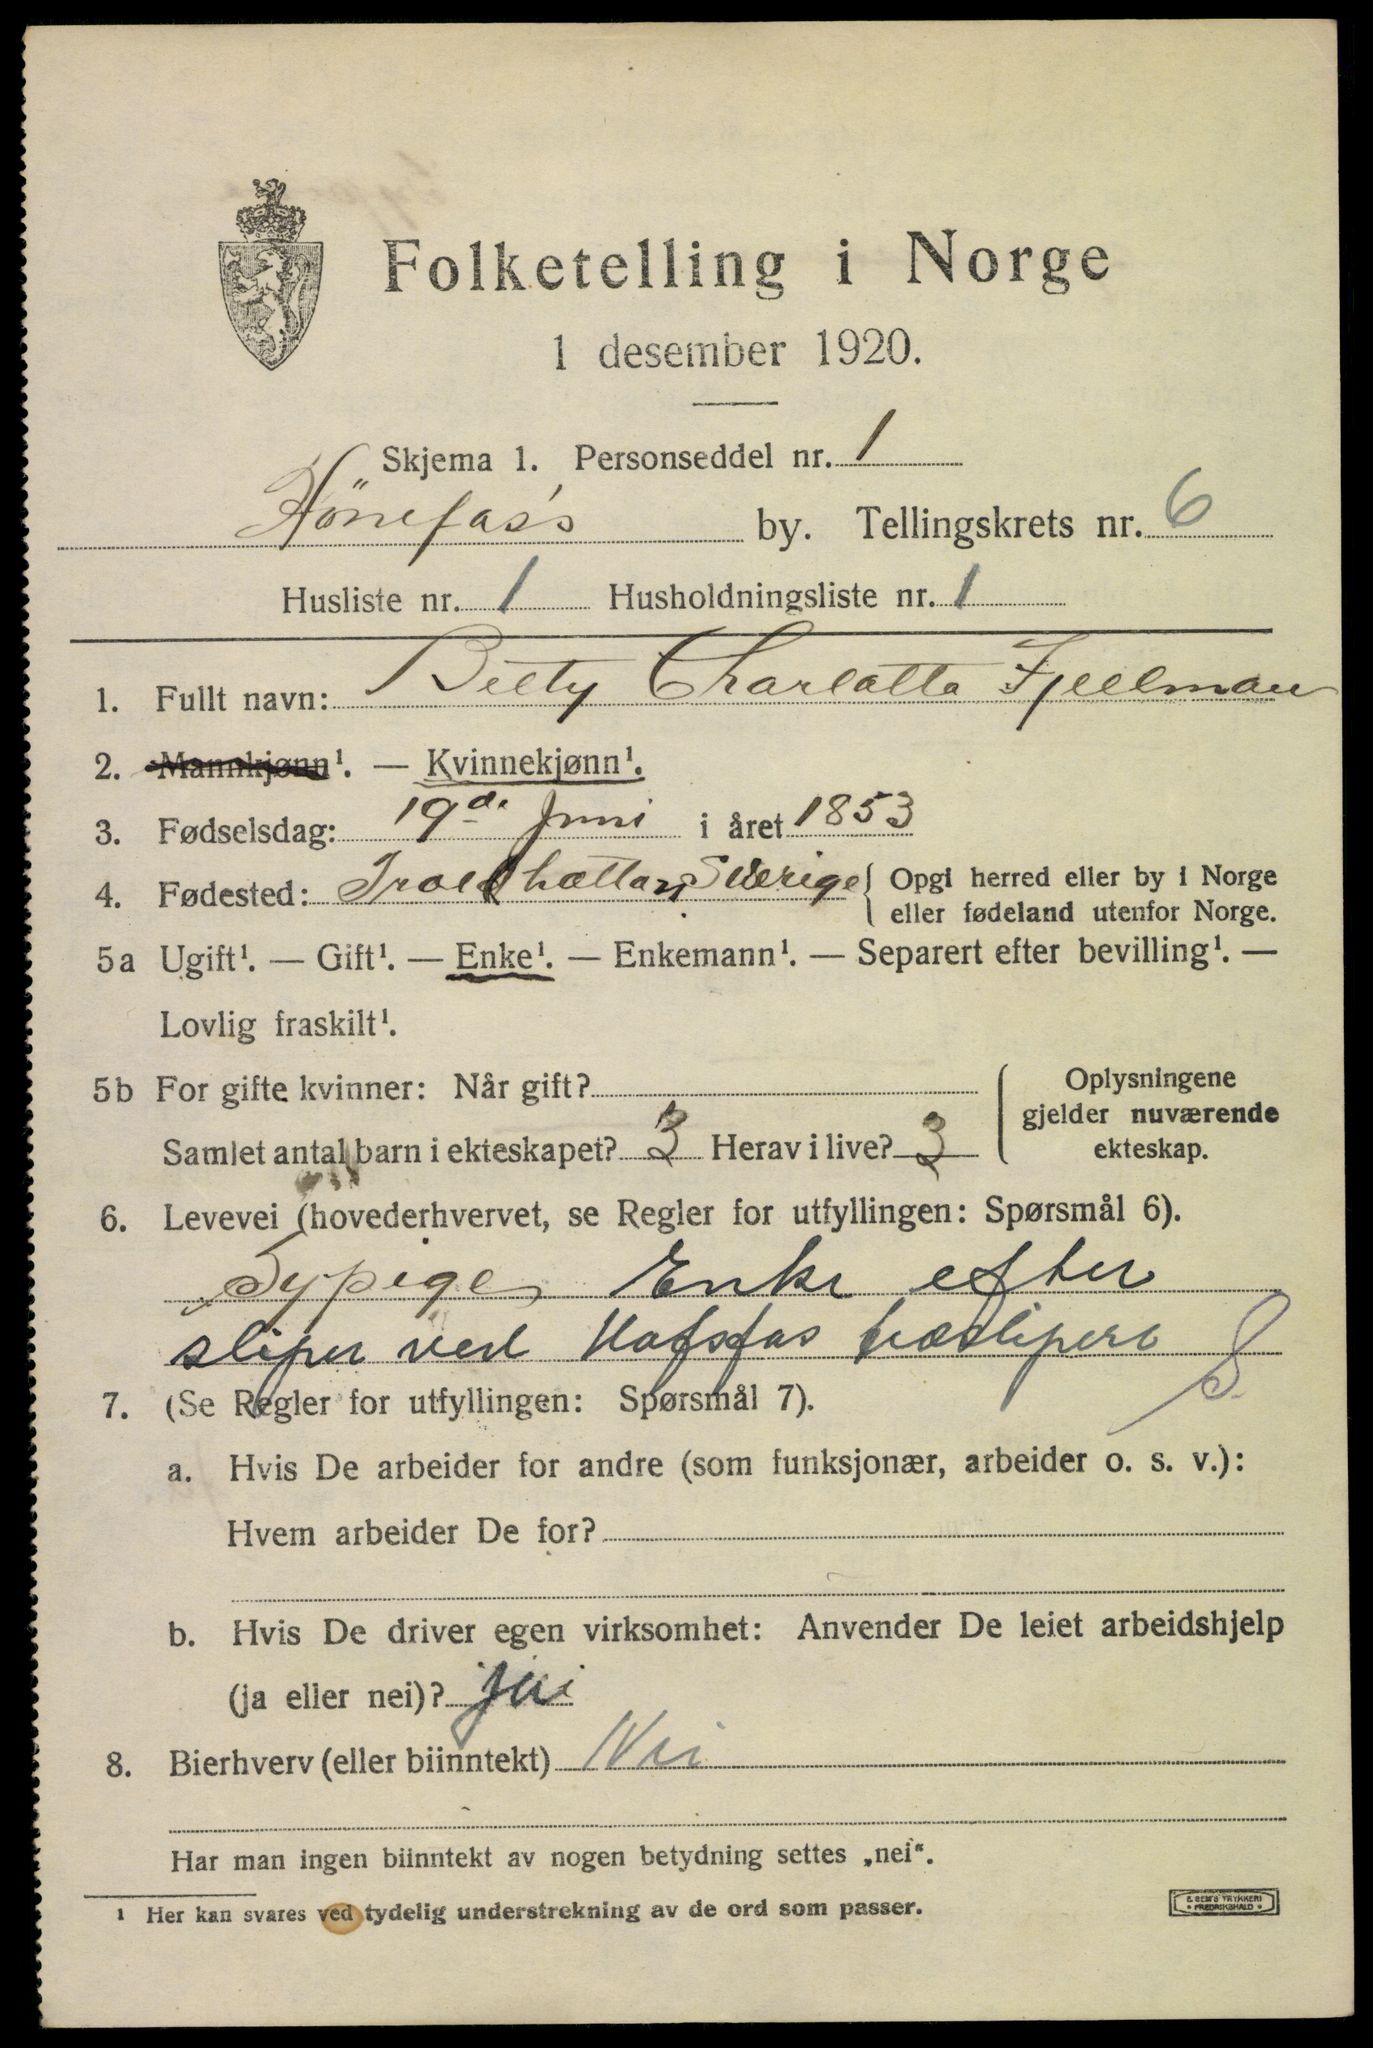 Folketelling i Norge
1 desember 1920.
Skjema 1. Personseddel nr. 1
Hönefoss by. Tellingskrets nr. 6
Husliste nr. 1 Husholdningsliste nr. 1
1. Fullt navn: Betty Charlotta Fjellman
2. Mannkjønn¹. — Kvinnekjønn¹.
3. Fødselsdag: 19de Juni i året 1853
4. Fødested: Trollhättan Sverige { Opgi herred eller by i Norge
eller fødeland utenfor Norge.
5a Ugift¹. — Gift¹. — Enke¹. — Enkemann¹. — Separert efter bevilling¹. —
Lovlig fraskilt¹.
5b For gifte kvinner: Når gift?
Samlet antal barn i ekteskapet? 3 Herav i live? 3
Oplysningene
gjelder nuværende
ekteskap.
6. Levevei (hovederhvervet, se Regler for utfyllingen: Spørsmål 6).
Sypige Enke efter
sliper ved Hofsfos træsliperi S
7. (Se Regler for utfyllingen: Spørsmål 7).
a. Hvis De arbeider for andre (som funksjonær, arbeider o. s. v.):
Hvem arbeider De for?
b. Hvis De driver egen virksomhet: Anvender De leiet arbeidshjelp
(ja eller nei)?
8. Bierhverv (eller biinntekt) Nei
Har man ingen biinntekt av nogen betydning settes „nei“.
¹ Her kan svares ved tydelig understrekning av de ord som passer.
E SEM'S TRYKKERI
FREDRIKSHALD